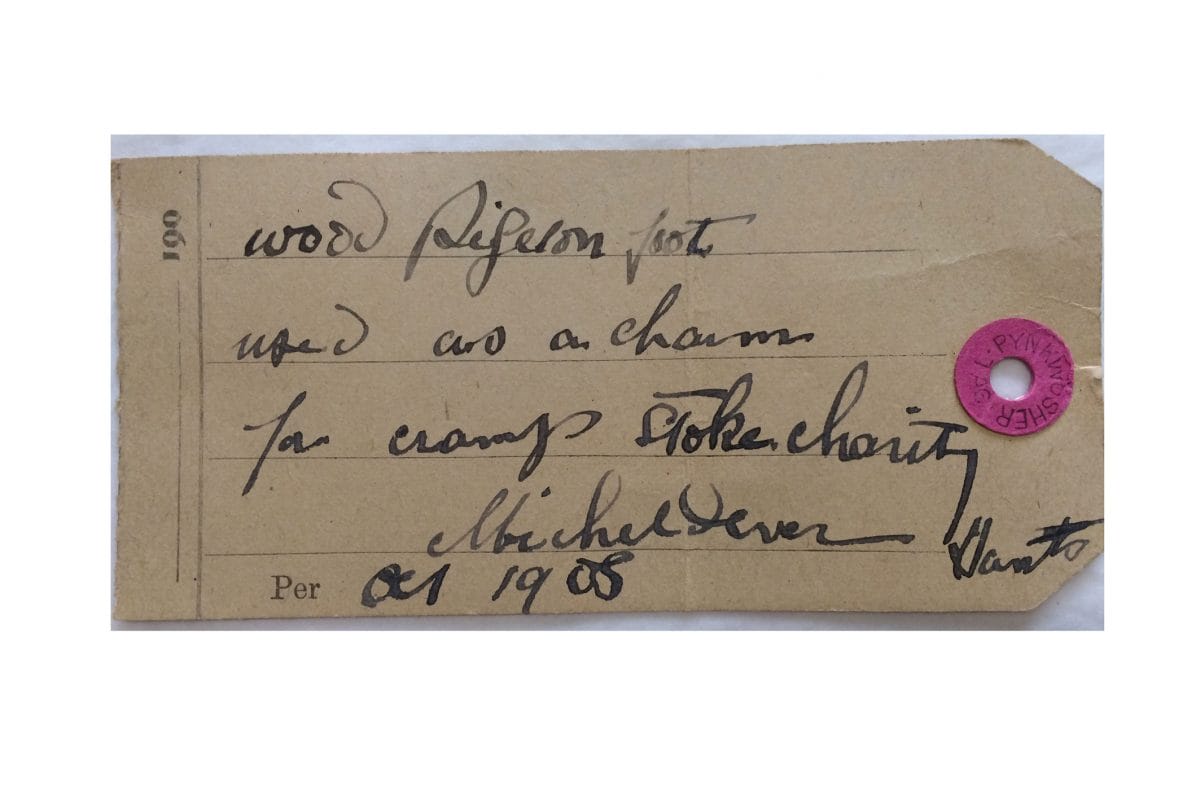 190
wood Pigeon foot
used as a charm
for cramp Stoke charity
Micheldever Hants
Per Oct 1908